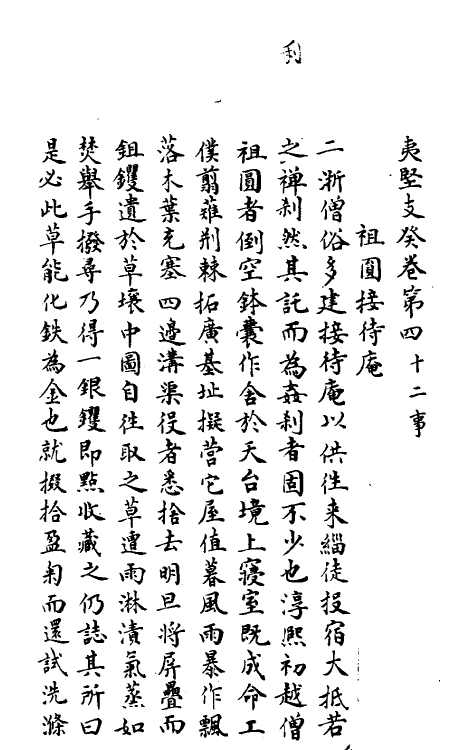 刹
夷堅支癸卷第四十二事
祖圓接待庵
二浙僧俗多建接待庵以供往来緇徒投宿大抵若
之禅刹然其託而為姦利者固不少也淳熙初越僧
祖圓者倒空鉢囊作舍於天台境上寝室既成命工
僕翦薙荆棘拓廣基址擬営它屋值暮風雨暴作飄
落木葉充塞四邊溝渠役者悉捨去明旦将屏疊而
鉏钁遺於草壤中圓自往取之草遭雨淋漬氣蒸如
焚舉手撥尋乃得一銀钁即點收藏之仍誌其所曰
是必此草能化鉄為金也就掇拾盈匊而還試洗滌